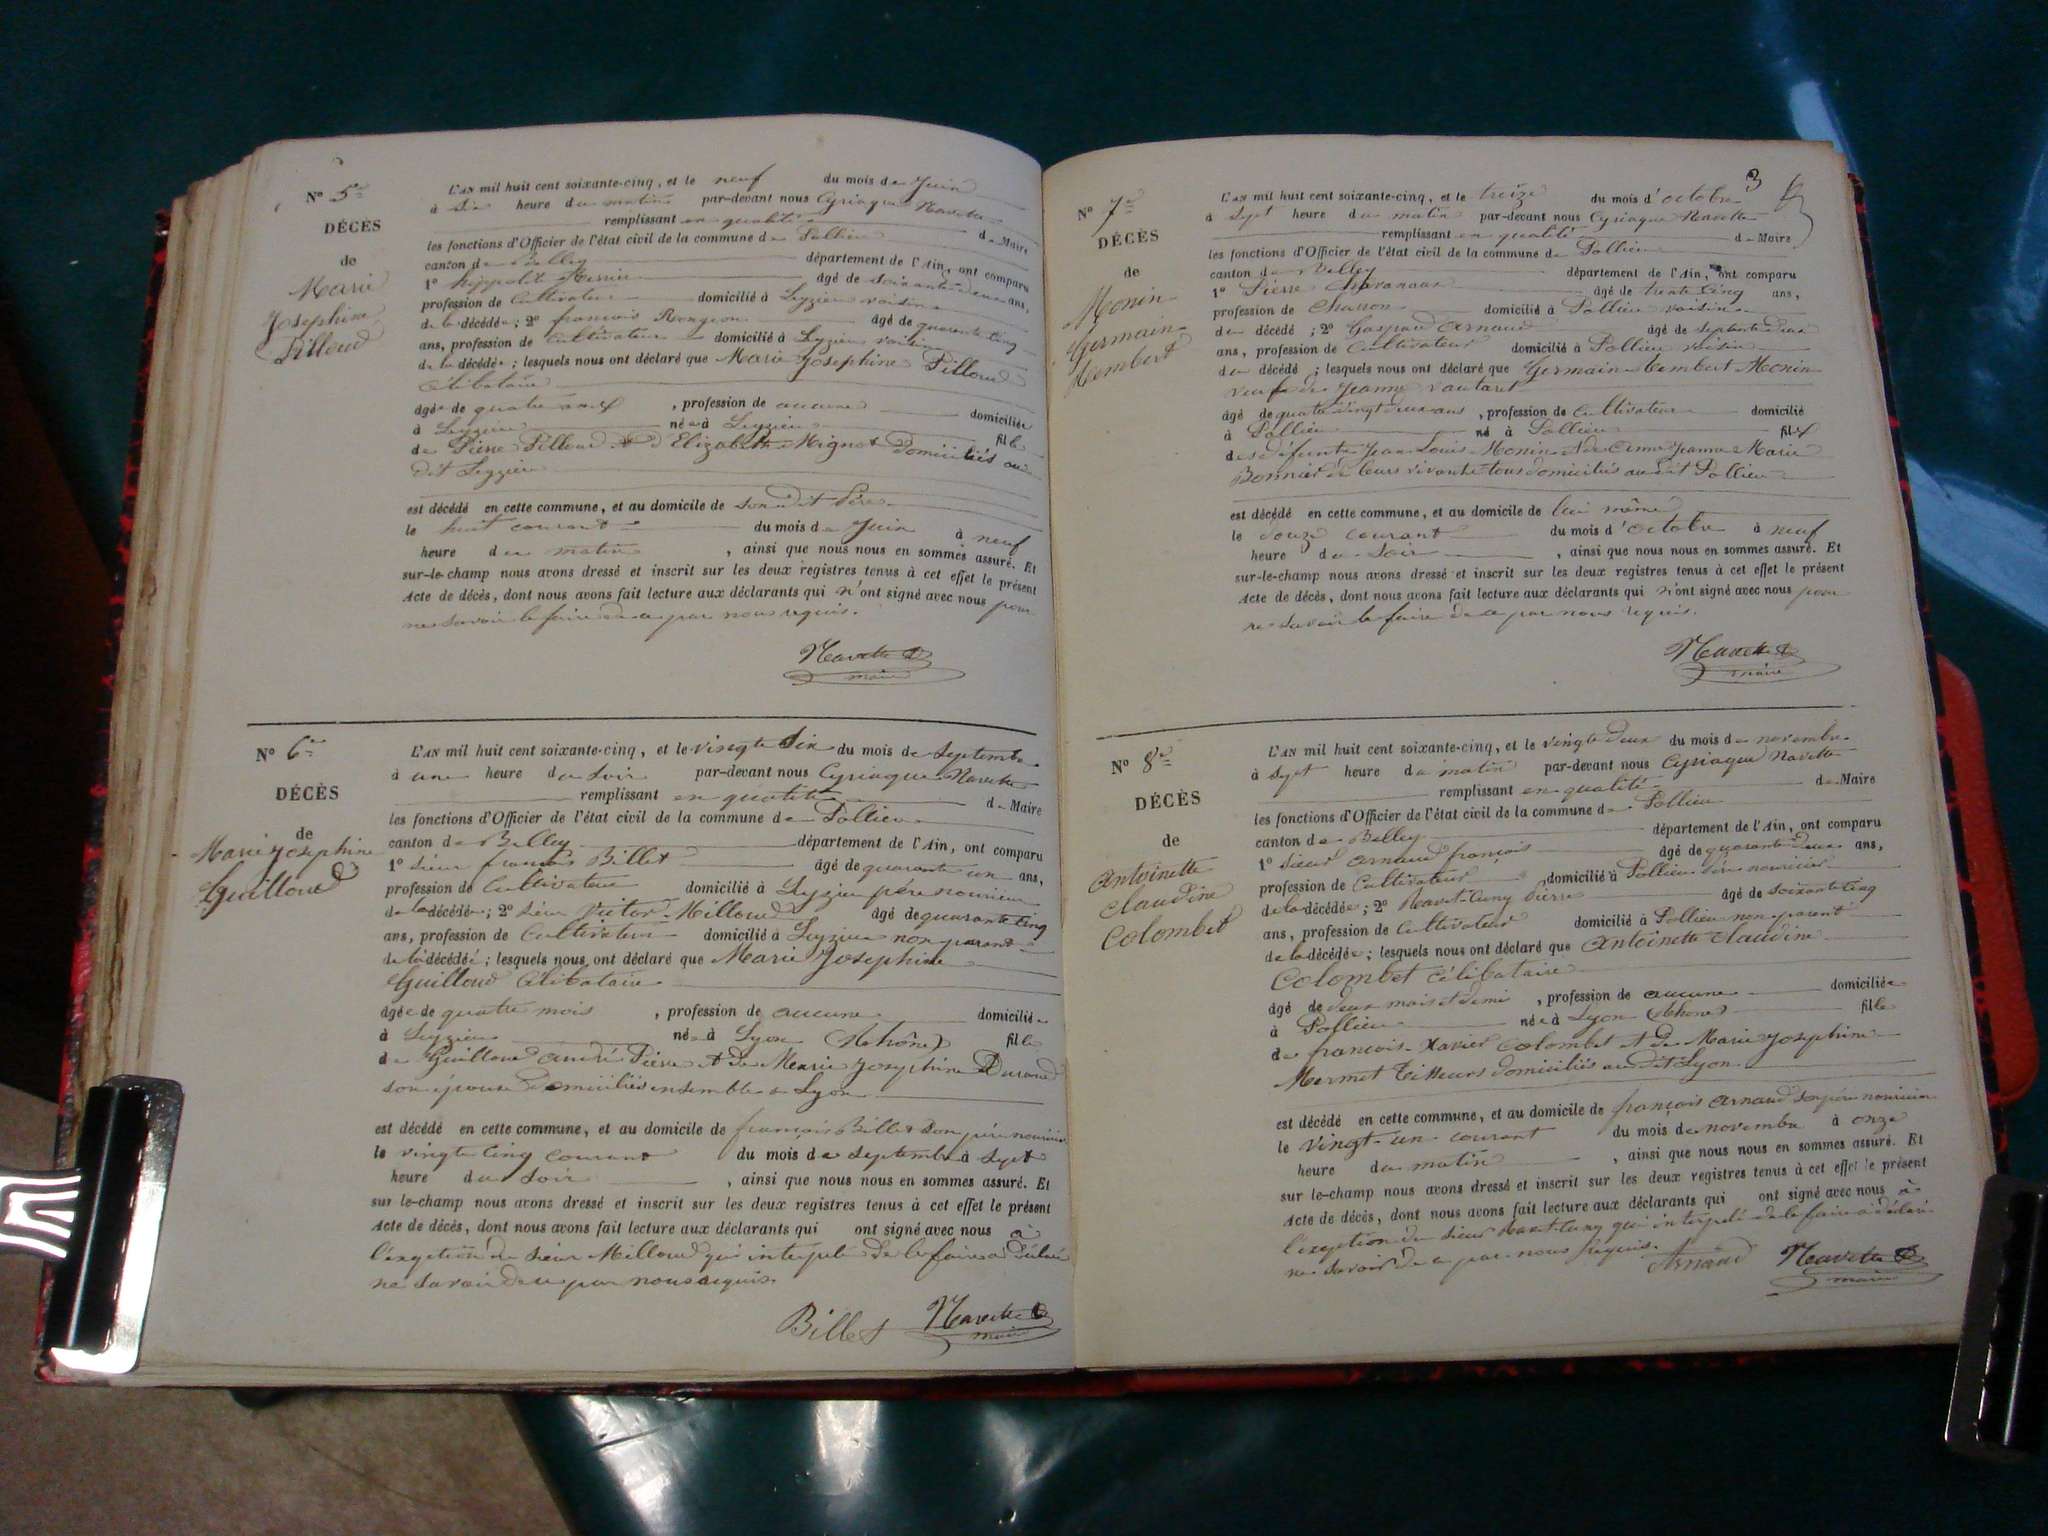 N° 5e
DÉCÈS
de
Marie
Josephine
Pilloud
L'AN mil huit cent soixante-cinq, et le neuf du mois de Juin
à six heure du matin par-devant nous Cyriaque Navette
remplissant en qualité de Maire
les fonctions d'Officier de l'état civil de la commune de Pollieu
canton de Belley département de l'Ain, ont comparu
1° hippolite âgé de soixante deux ans,
profession de Cultivateur domicilié à Leyzieu voisin
de la décédée ; 2° françois Rongeon âgé de quarante cinq
ans, profession de Cultivateur domicilié à Leyzieu voisin
de la décédée ; lesquels nous ont déclaré que Marie Josephine Pilloud
Célibataire
âgée de quatre ans , profession de aucune domiciliée
à Leyzieu née à Leyzieu fille
de Pierre Pilloud et d'Elizabeth Mignot Domiciliés au
dit Leyzieu
est décédé en cette commune, et au domicile de son dit Père
le huit courant du mois de Juin à neuf
heure du matin , ainsi que nous nous en sommes assuré. Et
sur-le-champ nous avons dressé et inscrit sur les deux registres tenus à cet effet le présent
Acte de décès, dont nous avons fait lecture aux déclarants qui n'ont signé avec nous pour
ne savoir le faire de ce par nous requis.
Navette
maire
N° 6e
DÉCÈS
de
Marie Josephine
Guilloud
L'AN mil huit cent soixante-cinq, et le vingt six du mois de Septembre
à une heure du soir par-devant nous Cyriaque Navette
remplissant en qualité de Maire
les fonctions d'Officier de l'état civil de la commune de Pollieu
canton de Belley département de l'Ain, ont comparu
1° Sieur françois Billet âgé de quarante un ans,
profession de Cultivateur domicilié à Leyzieu père nouricier
de la décédée ; 2° Sieur Victor Milloud âgé de quarante cinq
ans, profession de Cultivateur domicilié à Leyzieu non parent
de la décédée ; lesquels nous ont déclaré que Marie Josephine
Guilloud Célibataire
âgée de quatre mois , profession de aucune domiciliée
à Leyzieu née à Lyon (Rhône) fille
de Guilloud andré Pierre et de Marie Josephine Durand
son épouse Domiciliés ensemble à Lyon
est décédé en cette commune, et au domicile de françois Billet son père nouricier
le vingt cinq courant du mois de septembre à sept
heure du soir , ainsi que nous nous en sommes assuré. Et
sur le-champ nous avons dressé et inscrit sur les deux registres tenus à cet effet le présent
Acte de décès, dont nous avons fait lecture aux déclarants qui ont signé avec nous à
l'exeption du sieur Milloud qui interpelé de le faire a déclaré
ne savoir de ce par nous requis.
Billet Navette
maire
3
N° 7e
DÉCÈS
de
Monin
Germain
Hembert
L'AN mil huit cent soixante-cinq, et le treize du mois d'octobre
à sept heure du matin par-devant nous Cyriaque Navette
remplissant en qualité de Maire
les fonctions d'Officier de l'état civil de la commune de Pollieu
canton de Belley département de l'Ain, ont comparu
1° Pierre Chavanaux âgé de trente cinq ans,
profession de Charron domicilié à Pollieu voisin
du décédé ; 2° Gaspard arnaud âgé de septante deux
ans, profession de Cultivateur domicilié à Pollieu voisin
du décédé ; lesquels nous ont déclaré que Germain hembert Monin
veuf de Jeanne vautaret
âgé de quatre vingt deux ans , profession de Cultivateur domicilié
à Pollieu né à Pollieu fils
des défunts Jean Louis Monin Jeanne Marie
Bonnier de leurs vivants tous domiciliés au dit Pollieu
est décédé en cette commune, et au domicile de lui même
le douze courant du mois d'octobre à neuf
heure du soir , ainsi que nous nous en sommes assuré. Et
sur-le-champ nous avons dressé et inscrit sur les deux registres tenus à cet effet le présent
Acte de décès, dont nous avons fait lecture aux déclarants qui n'ont signé avec nous pour
ne savoir le faire de ce par nous requis.
Navette
maire
N° 8e
DÉCÈS
de
Antoinette
Claudine
Colombet
L'AN mil huit cent soixante-cinq, et le vingt deux du mois de novembre
à sept heure du matin par-devant nous Cyriaque Navette
remplissant en qualité de Maire
les fonctions d'Officier de l'état civil de la commune de Pollieu
canton de Belley département de l'Ain, ont comparu
1° Sieur arnaud françois âgé de quarante deux ans,
profession de Cultivateur , domicilié à Pollieu père nouricier
de la décédée ; 2° Pierre âgé de soixante cinq
ans, profession de Cultivateur domicilié à Pollieu non parent
de la décédée ; lesquels nous ont déclaré que Antoinette Claudine
Colombet Célibataire
âgé de deux mois et demi , profession de aucune domiciliée
à Pollieu née à Lyon (Rhône) fille
de françois Xavier Colombet et de Marie Josephine
Mermet Tisseurs domiciliés au dit Lyon.
est décédé en cette commune, et au domicile de françois arnaud son père nouricier
le vingt-un courant du mois de novembre à onze
heure du matin , ainsi que nous nous en sommes assuré. Et
sur le-champ nous avons dressé et inscrit sur les deux registres tenus à cet effet le présent
Acte de décès, dont nous avons fait lecture aux déclarants qui ont signé avec nous à
l'exeption du sieur qui interpelé de le faire a déclaré
ne savoir de ce par nous requis.
Arnaud Navette
maire